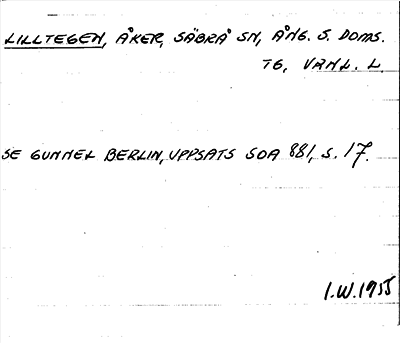 LILLTEGEN, ÅKER, SÄBRÅ SN, ÅNG. S. DOMS.
TG, VANL. L.
SE GUNNEL BERLIN, UPPSATS SOA 881, S. 17.
I.W. 1955